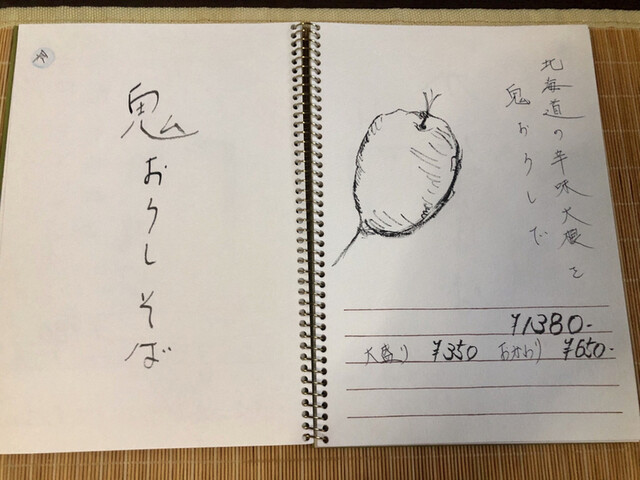 鬼おろしそば
北海道の辛味大根を
鬼おろしで
¥1380-
大盛り ¥350 おかわり ¥650-